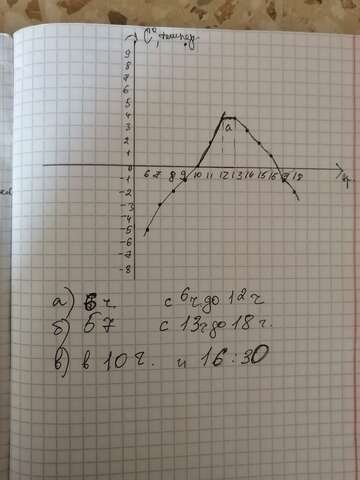 C°,
9
8
7
6
5
4
3
2
1
0
6 7 8 9 10 11 12 13 14 15 16 17 18
-1
-2
-3
-4
-5
-6
-7
-8
а
а) 6 ч с 6ч до 12 ч
б) 67 с 13ч до 18 г.
в) в 10 г. и 16:30